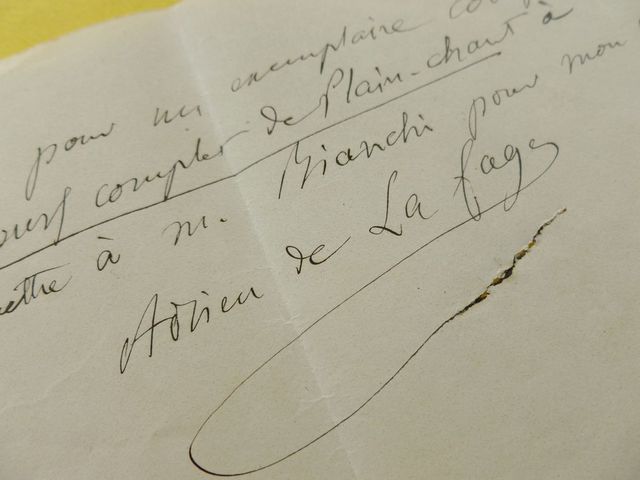 pour un exemplaire
cours complet de Plain-chant à
mettre à m. Bianchi pour mon
Adrien de La fage